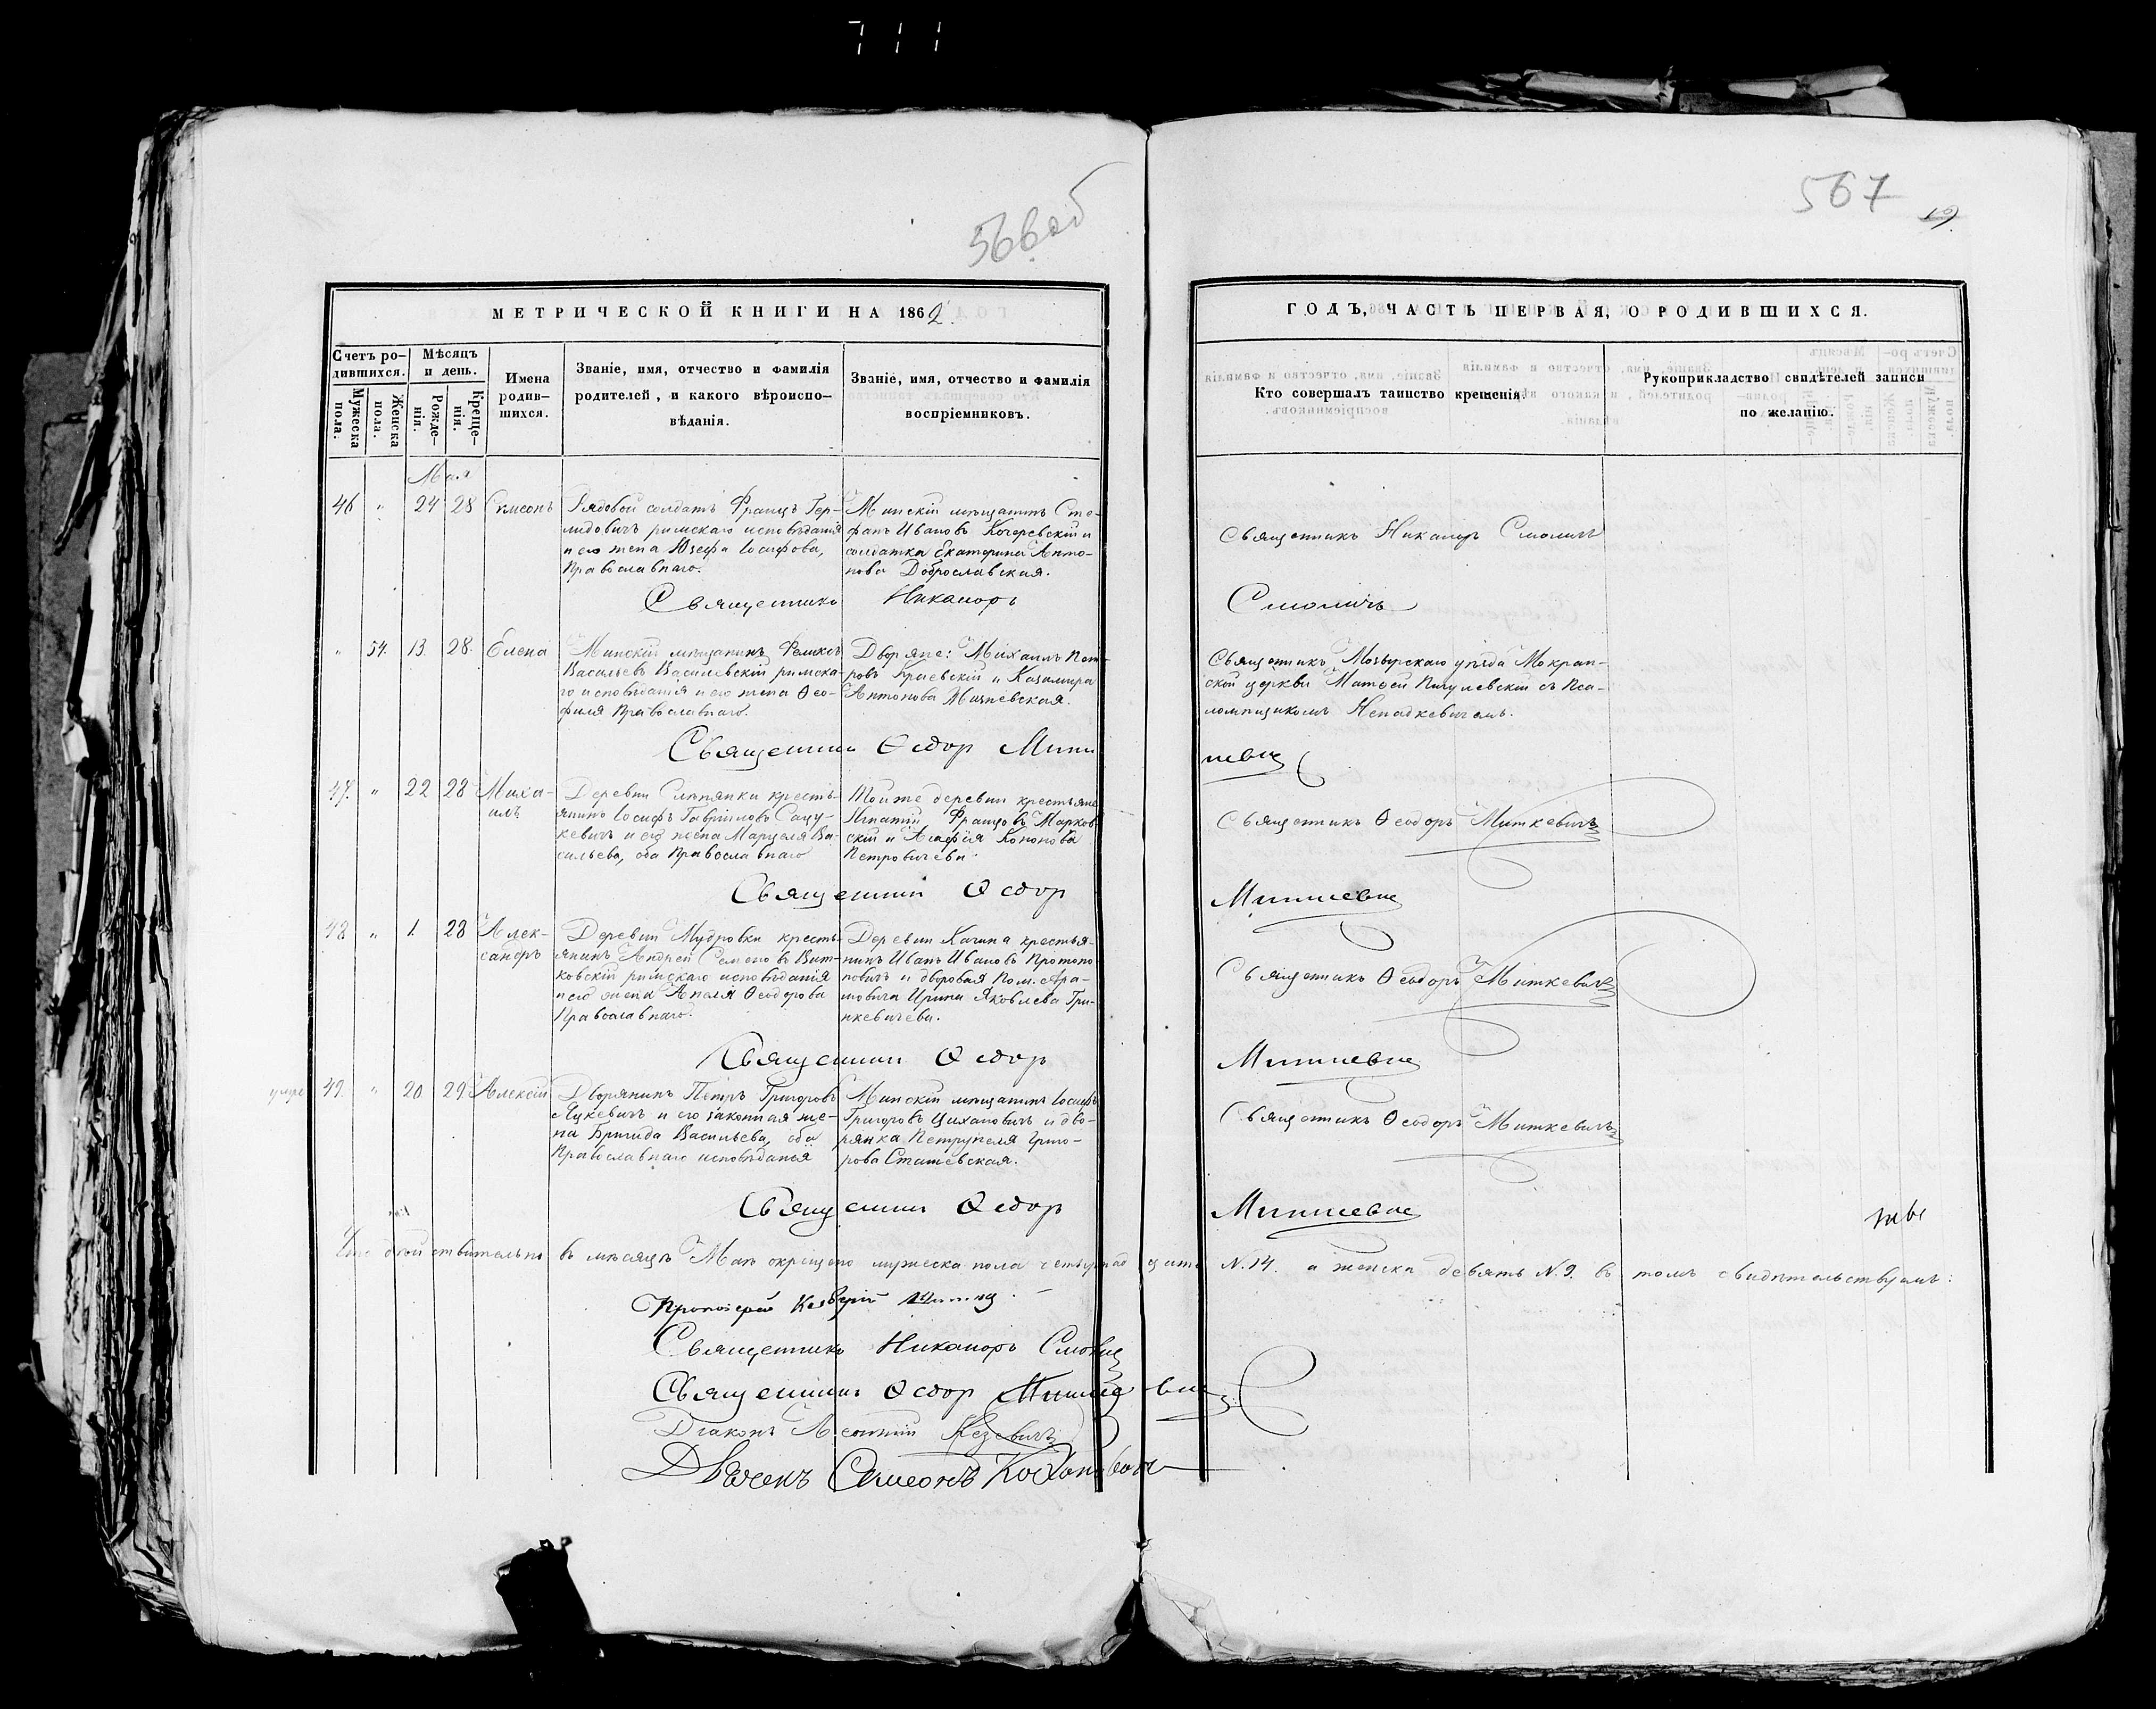 711
566 об
567
19.
МЕТРИЧЕСКОЙ КНИГИ НА 1862.
ГОДЪ, ЧАСТЬ ПЕРВАЯ, О РОДИВШИХСЯ.
Счетъ ро-
дившихся.
Мѣсяцъ
и день.
Мужеска
пола.
Женска
пола.
Рожде-
нія.
Креще-
нія.
Имена
родив-
шихся.
Званіе, имя, отчество и фамилія
родителей, и какого вѣроиспо-
вѣданія.
Званіе, имя, отчество и фамилія
воспріемниковъ.
Кто совершалъ таинство крещенія.
Рукоприкладство свидѣтелей записи
по желанію.
Мая
46 " 24 28 Симеонъ
Рядовой солдатъ Францъ Гер-
мидовичъ римскаго исповѣданія
и его жена Юзефа Іосифова,
Православнаго.
Минскій мѣщанинъ Сте-
фанъ Ивановъ Кочеревскій и
солдатка Екатерина Анто-
нова Доброславская.
Священникъ Никаноръ Смоличъ
Священникъ Никаноръ
Смоличъ
" 54. 13. 28. Елена
Минскій мѣщанинъ Феликсъ
Васильевъ Василевскій римска-
го исповѣданія и его жена Ѳео-
филя Православнаго.
Дворяне: Михаилъ Пет-
ровъ Краевскій и Казимира
Антонова Мачневская.
Священникъ Мозырскаго уѣзда Мокран-
ской церкви Матѳей Пигулевскій съ Пса-
ломщикомъ Ненадкевичемъ.
Священникъ Ѳеодоръ Митк
евичъ
47. " 22 28 Миха-
илъ
Деревни Слѣпянки кресть-
янинъ Іосифъ Гавріиловъ Сацу-
кевичъ и его жена Марцеля Ва-
сильева, оба Православнаго
Тойже деревни крестьяне
Игнатій Францовъ Марков-
скій и Агафія Кононова
Петровичева.
Священникъ Ѳеодоръ Миткевичъ
Священникъ Ѳеодоръ
Миткевичъ
48 " 1. 28 Алек-
сандръ
Деревни Мудровки кресть-
янинъ Андрей Семеновъ Вит-
ковскій римскаго исповѣданія
и его жена Анеля Ѳеодорова
Православнаго.
Деревни Качина крестья-
нинъ Иванъ Ивановъ Протопо-
повичъ и дворовая Пом. Ара-
мовича Ирина Яковлева Гри-
нкевичева.
Священникъ Ѳеодоръ Миткевичъ
Священникъ Ѳеодоръ
Миткевичъ
умре 49. " 20 29. Алексій
Дворянинъ Петръ Григоровъ
Лукевичъ и его законная же-
на Бригида Васильева, оба
Православнаго исповѣданія
Минскій мѣщанинъ Іосифъ
Григоровъ Цихановичъ и дво-
рянка Петрунеля Григо-
рова Сташевская.
Священникъ Ѳеодоръ Миткевичъ
Священникъ Ѳеодоръ
Миткевичъ
Что дѣйствительно въ мѣсяцѣ Маѣ окрещено мужеска пола четырнадцать N. 14. а женска девять N. 9. въ томъ свидѣтельствуемъ:
Протоіерей
Священникъ Никаноръ Смоличъ
Священникъ Ѳеодоръ Миткевичъ
Діаконъ
Дьячекъ Симеонъ